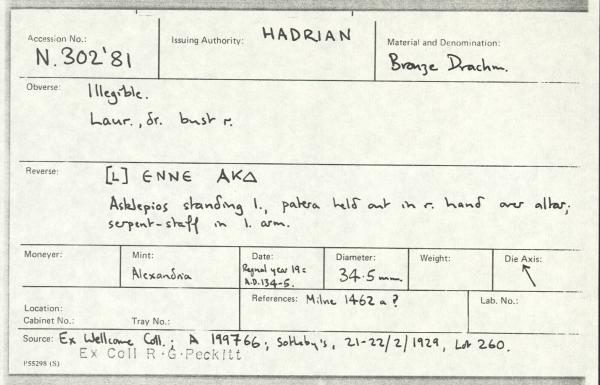 Accession No.: N.302'81
Issuing Authority: HADRIAN
Material and Denomination: Bronze Drachm.
Obverse: Illegible.
Laur., dr. bust r.
Reverse: [L] ЄNNE AKΔ
Asklepios standing l., patera held out in r. hand over altar;
serpent-staff in l. arm.
Moneyer:
Mint: Alexandria
Date: Regnal year 19 =
A.D.134-5.
Diameter: 34.5 mm.
Weight:
Die Axis: ↖
Location:
Cabinet No.: Tray No.:
References: Milne 1462 a ?
Lab. No.:
Source: Ex Wellcome Coll.; A 199766; Sotheby's, 21-22/2/1929, Lot 260.
Ex Coll R.G.Peckitt
P55298 (S)